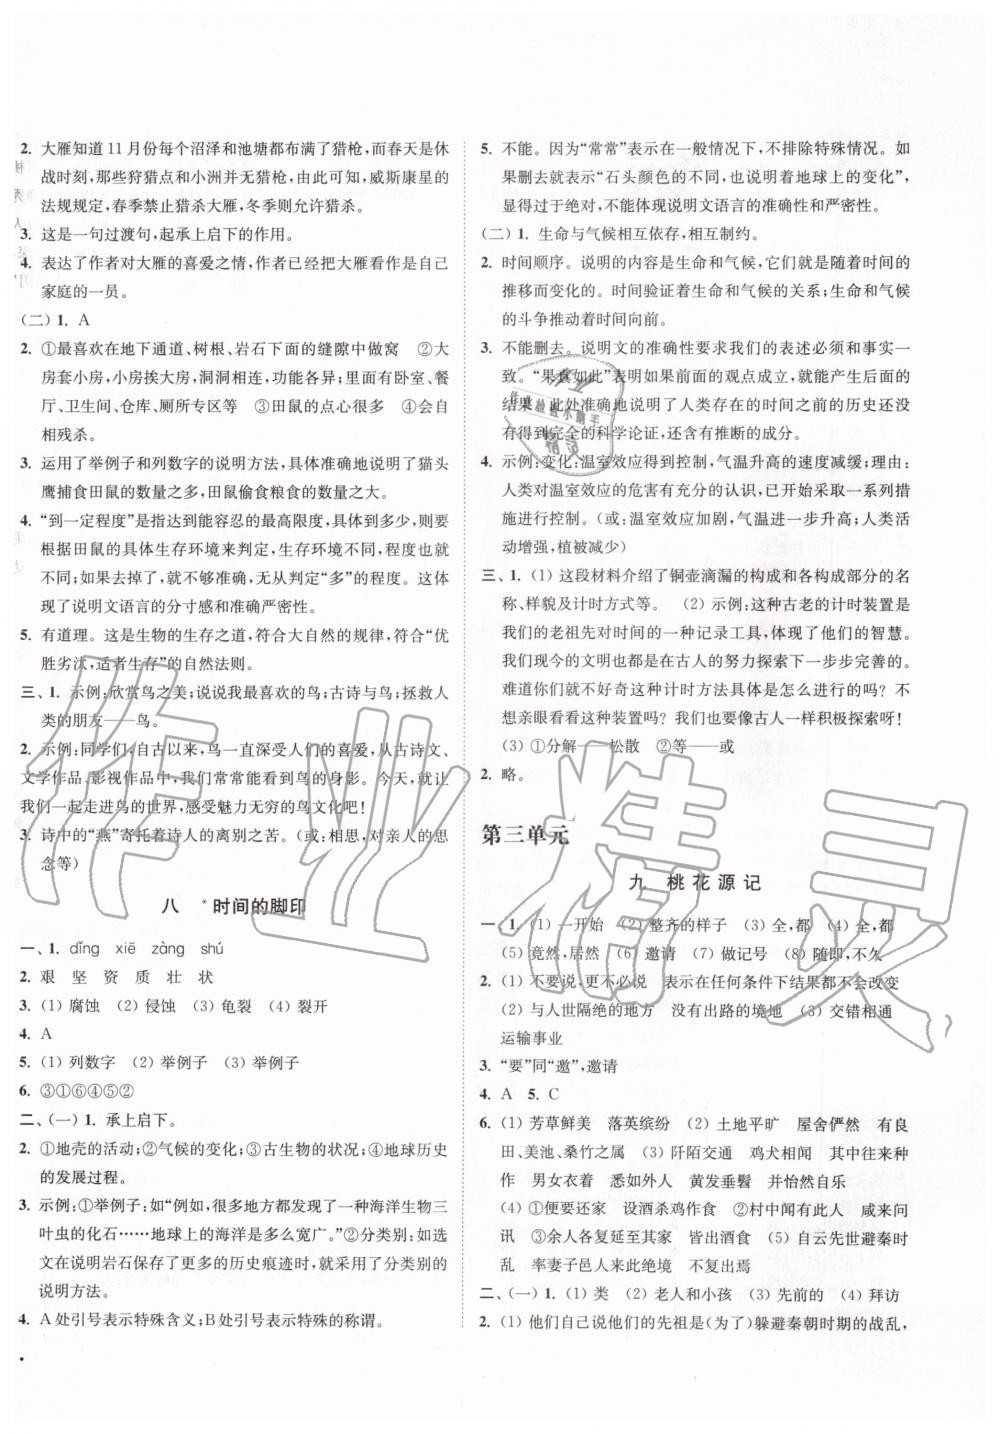 2. 大雁知道11月份每个沼泽和池塘都布满了猎枪,而春天是休
战时刻,那些狩猎点和小洲并无猎枪,由此可知,威斯康星的
法规规定,春季禁止猎杀大雁,冬季则允许猎杀。
3. 这是一句过渡句,起承上启下的作用。
4. 表达了作者对大雁的喜爱之情,作者已经把大雁看作是自己
家庭的一员。
(二)1. A
2. ①最喜欢在地下通道、树根、岩石下面的缝隙中做窝 ②大
房套小房,小房挨大房,洞洞相连,功能各异;里面有卧室、餐
厅、卫生间、仓库、厕所专区等 ③田鼠的点心很多 ④会自
相残杀。
3. 运用了举例子和列数字的说明方法,具体准确地说明了猫头
鹰捕食田鼠的数量之多,田鼠偷食粮食的数量之大。
4. “到一定程度”是指达到能容忍的最高限度,具体到多少,则要
根据田鼠的具体生存环境来判定,生存环境不同,程度也就
不同;如果去掉了,就不够准确,无从判定“多”的程度。这体
现了说明文语言的分寸感和准确、严密性。
5. 有道理。这是生物的生存之道,符合大自然的规律,符合“优
胜劣汰,适者生存”的自然法则。
三、1. 示例:欣赏鸟之美;说说我最喜欢的鸟;古诗与鸟;拯救人
类的朋友——鸟。
2. 示例:同学们,自古以来,鸟一直深受人们的喜爱,从古诗文、
文学作品,影视作品中,我们常常能看到鸟的身影。今天,就让
我们一起走进鸟的世界,感受魅力无穷的鸟文化吧!
3. 诗中的“燕”寄托着诗人的离别之苦。(或:相思,对亲人的思
念等)
八 *时间的脚印
一、1. dǐng xiē zàng shú
2. 艰 坚 资 质 壮 状
3. (1) 腐蚀 (2) 侵蚀 (3) 龟裂 (4) 裂开
4. A
5. (1) 列数字 (2) 举例子 (3) 举例子
6. ③①⑥④⑤②
二、(一)1. 承上启下。
2. ①地壳的活动;②气候的变化;③古生物的状况;④地球历史
的发展过程。
3. 示例:①举例子:如“例如,很多地方都发现了一种海洋生物三
叶虫的化石……地球上的海洋是多么宽广。”②分类别:如选
文在说明岩石保存了更多的历史痕迹时,就采用了分类别的
说明方法。
4. A处引号表示特殊含义;B处引号表示特殊的称谓。
5. 不能。因为“常常”表示在一般情况下,不排除特殊情况。如
果删去就表示“石头颜色的不同,也说明着地球上的变化”,
显得过于绝对,不能体现说明文语言的准确性和严密性。
(二)1. 生命与气候相互依存,相互制约。
2. 时间顺序。说明的内容是生命和气候,它们就是随着时间的
推移而变化的。时间验证着生命和气候的关系;生命和气候
的斗争推动着时间向前。
3. 不能删去。说明文的准确性要求我们的表述必须和事实一
致。“果真如此”表明如果前面的观点成立,就能产生后面的
结果。此处准确地说明了人类存在的时间之前的历史还没
有得到完全的科学论证,含有推断的成分。
4. 示例:变化:温室效应得到控制,气温升高的速度减缓;理由:
人类对温室效应的危害有充分的认识,已开始采取一系列措
施进行控制。(或:温室效应加剧,气温进一步升高;人类活
动增强,植被减少)
三、1. (1) 这段材料介绍了铜壶滴漏的构成和各构成部分的名
称、样貌及计时方式等。 (2) 示例:这种古老的计时装置是
我们的老祖先对时间的一种记录工具,体现了他们的智慧。
我们现今的文明也就是在古人的努力探索下一步步完善的。
难道你们就不好奇这种计时方法具体是怎么进行的吗? 不
想亲眼看看这种装置吗? 我们也要像古人一样积极探索呀!
(3) ①分解——松散 ②等——或
2. 略。
第三单元
九 桃花源记
一、1. (1) 一开始 (2) 整齐的样子 (3) 全,都 (4) 全,都
(5) 竟然,居然 (6) 邀请 (7) 做记号 (8) 随即,不久
2. (1) 不要说,更不必说 表示在任何条件下结果都不会改变
(2) 与人世隔绝的地方 没有出路的境地 (3) 交错相通
运输事业
3. “要”同“邀”,邀请
4. A 5. C
6. (1) 芳草鲜美 落英缤纷 (2) 土地平旷 屋舍俨然 有良
田、美池、桑竹之属 (3) 阡陌交通 鸡犬相闻 其中往来种
作 男女衣着 悉如外人 黄发垂髫 并怡然自乐
(4) ①便要还家 设酒杀鸡作食 ②村中闻有此人 咸来问
讯 ③余人各复延至其家 皆出酒食 (5) 自云先世避秦时
乱 率妻子邑人来此绝境 不复出焉
二、(一)1. (1) 类 (2) 老人和小孩 (3) 先前的 (4) 拜访
2. (1) 他们自己说他们的先祖是(为了)躲避秦朝时期的战乱,
作业精灵